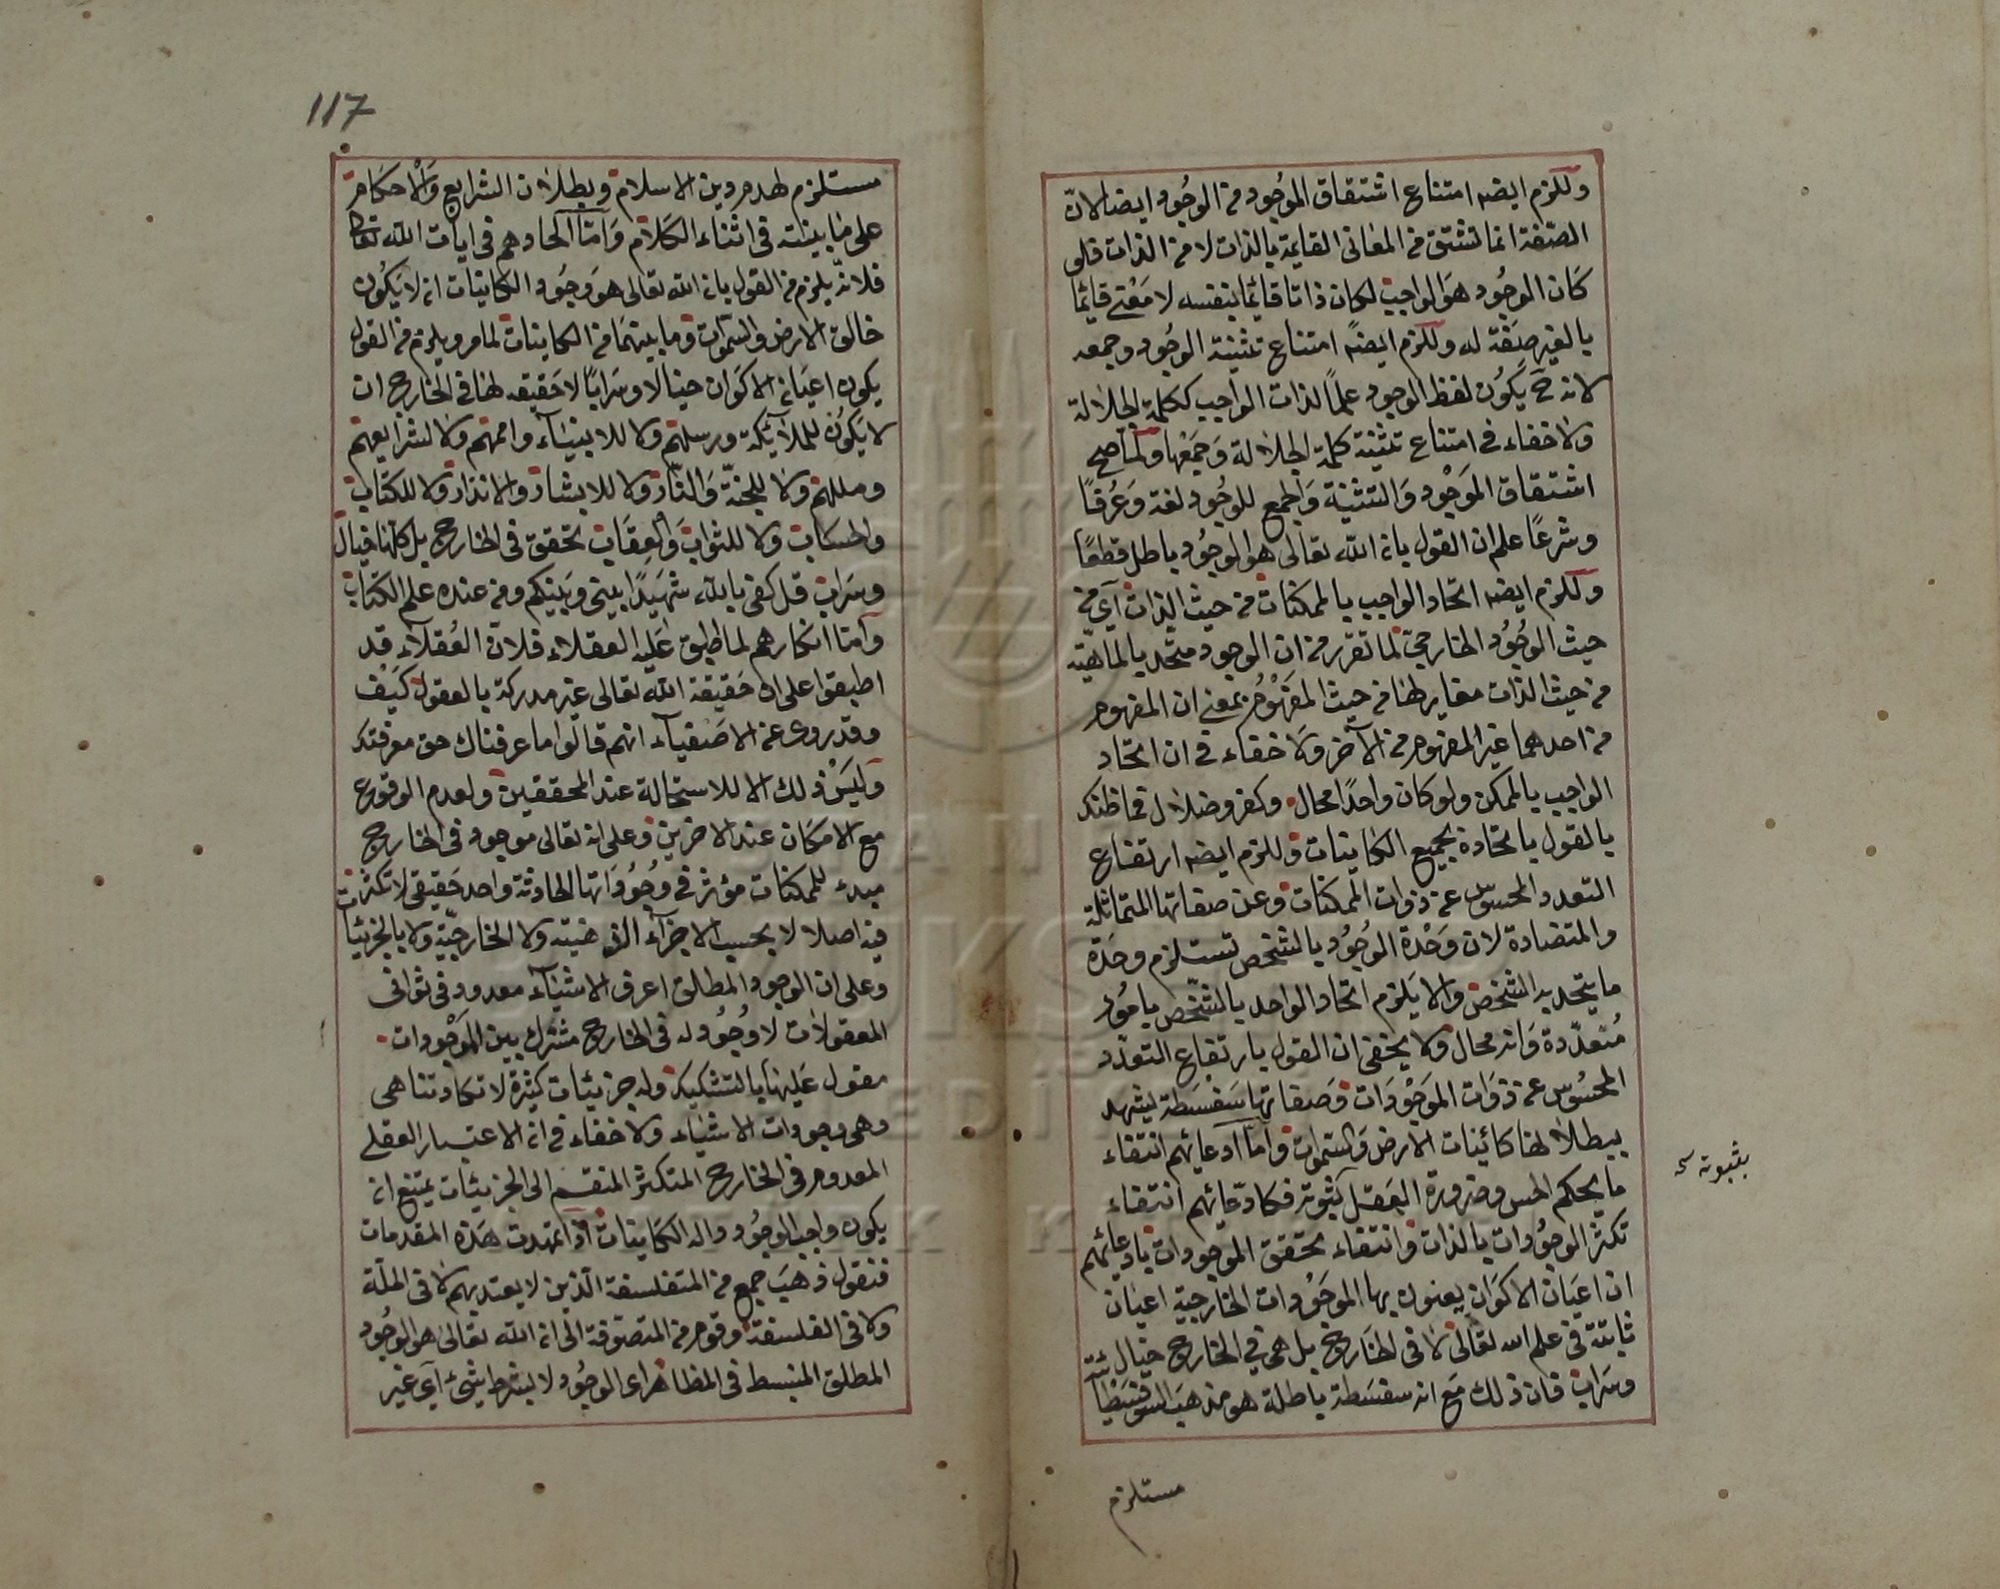 وللزم ايضه امتناع اشتقاق الموجود من الوجود ايضا لان
الصنفة انما تشتق من المعانى القايمة بالذات لا من الذات فلو
كان الوجود هو الواجب لكان ذاتا قائما بنفسه لا معنى قايما
بالغير صفة له وللزم ايضه امتناع تثنية الوجود وجمعه
لانه ح يكون لفظ الوجود علما لذات الواجب ككلمة الجلالة
ولا خفاء فى امتناع تثنية كلمة الجلالة وجمعها ولما صح
اشتقاق الموجود والتثنية والجمع للوجود لغة وعرفا
وشرعا علم ان القول بان الله تعالى هو الوجود باطل قطعا
وللزم ايضه اتحاد الواجب بالممكنات من حيث الذات اى من
حيث الوجود الخارجى لما تقرر من ان الوجود متحد بالماهية
من حيث الذات مغاير لها من حيث المفهوم بمعنى ان المفهوم
من احدهما غير المفهوم من الآخر ولا خفاء فى ان اتحاد
الواجب بالممكن ولو كان واحدا محال وكفر وضلال فما ظنك
بالقول باتحاده بجميع الكاينات وللزم ايضه ارتفاع
التعدد المحسوس عن ذوات الممكنات وعن صفاتها المتماثلة
والمتضادة لان وحدة الوجود بالشخص تستلزم وحدة
ما يتحد به الشخص والا يلزم اتحاد الواحد بالشخص بامور
متعددة وانه محال ولا يخفى ان القول بارتفاع التعدد
المحسوس عن ذوات الموجودات وصفاتها سفسطة يشهد
ببطلانها كائنات الارض والسموات واما ادعائهم انتفاء
ما يحكم الحس وضرورة العقل بثبوته فكادعائهم انتفاء
بثبوته
تكثر الوجودات بالذات وانتفاء تحقق الموجودات بادعائهم
ان اعيان الاكوان يعنون بها الموجودات الخارجية اعيان
ثابتة فى علم الله تعالى لا فى الخارج بل هى فى الخارج خيال
وسراب فان ذلك مع انه سفسطة باطلة هو مذهب السوفسطائية
مستلزم
117
مستلزم لهدم دين الاسلام وبطلان الشرايع والاحكام
على ما بينته فى اثناء الكلام واما الحادهم فى ايات الله تعالى
فلانه يلزم من القول بان الله تعالى هو وجود الكاينات ان لا يكون
خالق الارض والسموات وما بينهما من الكاينات لما مر ويلزم من القول
بكون اعيان الاكوان خيالا وسرابا لا حقيقه لها فى الخارج ان
لا يكون للملائكة ورسلهم ولا للانبياء واممهم ولا لشرايعهم
ومللهم ولا للجنة والنار ولا للابشار والانذار ولا للكتاب
والحساب ولا للثواب والعقاب تحقق فى الخارج بل كلها خيال
وسراب قل كفى بالله شهيدا بينى وبينكم ومن عنده علم الكتاب
واما انكارهم لما اطبق عليه العقلاء فلان العقلاء قد
اطبقوا على ان حقيقة الله تعالى غير مدركة بالعقول كيف
وقد روى عن الاصفياء انهم قالوا ما عرفناك حق معرفتك
وليس ذلك الا للاستحالة عند المحققين ولعدم الوقوع
مع الامكان عند الاخرين وعلى انه تعالى موجود فى الخارج
مبدء للممكنات مؤثر فى وجوداتها الحادثة واحد حقيقى لا تكثر
فيه اصلا لا بحسب الاجزاء الذهنية ولا الخارجية ولا بالجزئيات
وعلى ان الوجود المطلق اعرف الاشياء معدود فى ثوانى
المعقولات لا وجود له فى الخارج مشترك بين الموجودات
مقول عليها بالتشكيك وله جزئيات كثيرة لا تكاد تتناهى
وهى وجودات الاشياء ولا خفاء فى ان الاعتبار العقلى
المعدوم فى الخارج المتكثر المنقسم الى الجزئيات يمتنع ان
يكون واجب الوجود واله الكاينات اذا تمهدت هذه المقدمات
فنقول ذهب جمع من المتفلسفة الذين لا يعتد بهم لا فى الملة
ولا فى الفلسفة وقوم من المتصوفة الى ان الله تعالى هو الوجود
المطلق المنبسط فى المظاهر اى الوجود لا بشرط شئ اى غير